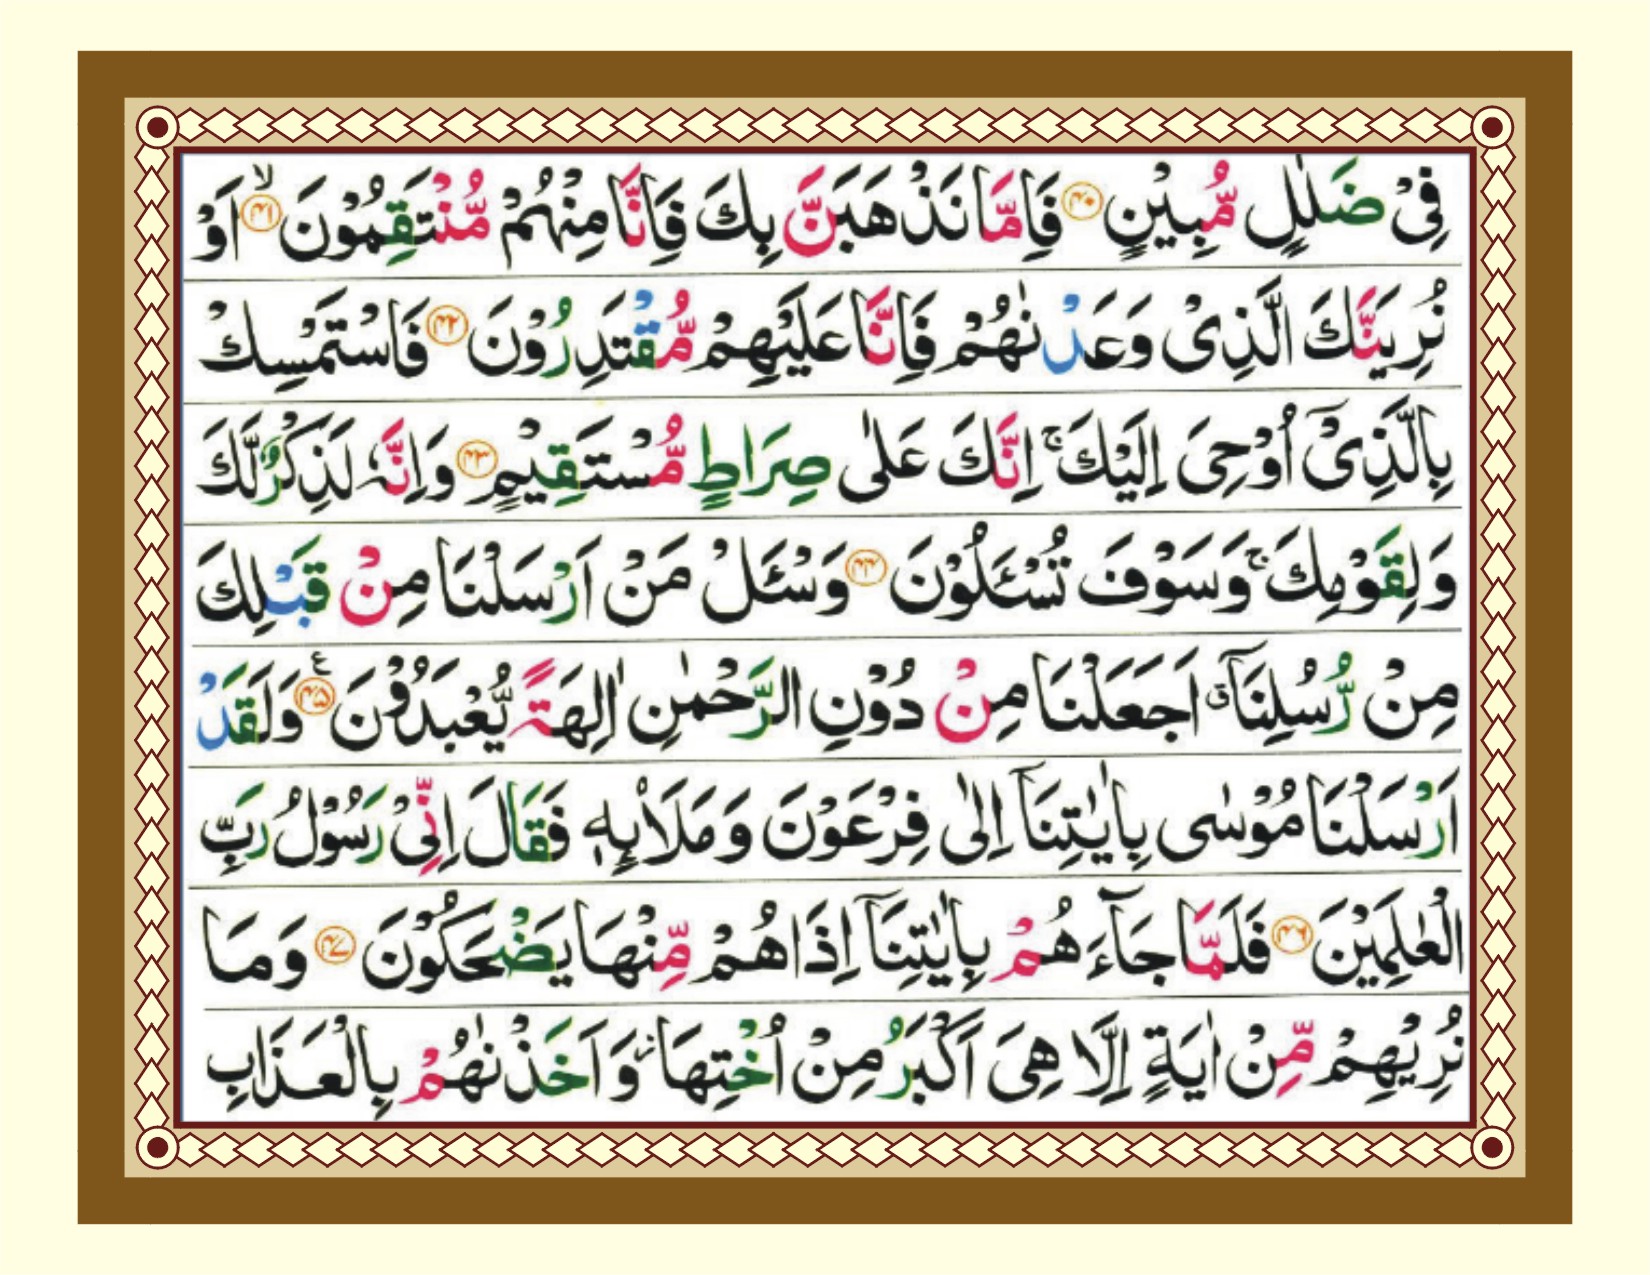 فِىْ ضَلٰلٍ مُّبِيْنٍ ﴿۴۰﴾ فَاِمَّا نَذْهَبَنَّ بِكَ فَاِنَّا مِنْهُمْ مُّنْتَقِمُوْنَ ۙ﴿۴۱﴾ اَوْ
نُرِيَنَّكَ الَّذِىْ وَعَدْنٰهُمْ فَاِنَّا عَلَيْهِمْ مُّقْتَدِرُوْنَ ﴿۴۲﴾ فَاسْتَمْسِكْ
بِالَّذِىْۤ اُوْحِىَ اِلَيْكَ ۚ اِنَّكَ عَلٰى صِرَاطٍ مُّسْتَقِيْمٍ ﴿۴۳﴾ وَاِنَّهٗ لَذِكْرٌ لَّكَ
وَلِقَوْمِكَ ۚ وَسَوْفَ تُسْـَٔلُوْنَ ﴿۴۴﴾ وَسْـَٔلْ مَنْ اَرْسَلْنَا مِنْ قَبْلِكَ
مِنْ رُّسُلِنَاۤ ۖ اَجَعَلْنَا مِنْ دُوْنِ الرَّحْمٰنِ اٰلِهَةً يُّعْبَدُوْنَ ﴿۴۵﴾ ع وَلَقَدْ
اَرْسَلْنَا مُوْسٰى بِاٰيٰتِنَاۤ اِلٰى فِرْعَوْنَ وَمَلَا۟ئِهٖ فَقَالَ اِنِّىْ رَسُوْلُ رَبِّ
الْعٰلَمِيْنَ ﴿۴۶﴾ فَلَمَّا جَآءَهُمْ بِاٰيٰتِنَاۤ اِذَا هُمْ مِّنْهَا يَضْحَكُوْنَ ﴿۴۷﴾ وَمَا
نُرِيْهِمْ مِّنْ اٰيَةٍ اِلَّا هِىَ اَكْبَرُ مِنْ اُخْتِهَا ؗ وَاَخَذْنٰهُمْ بِالْعَذَابِ